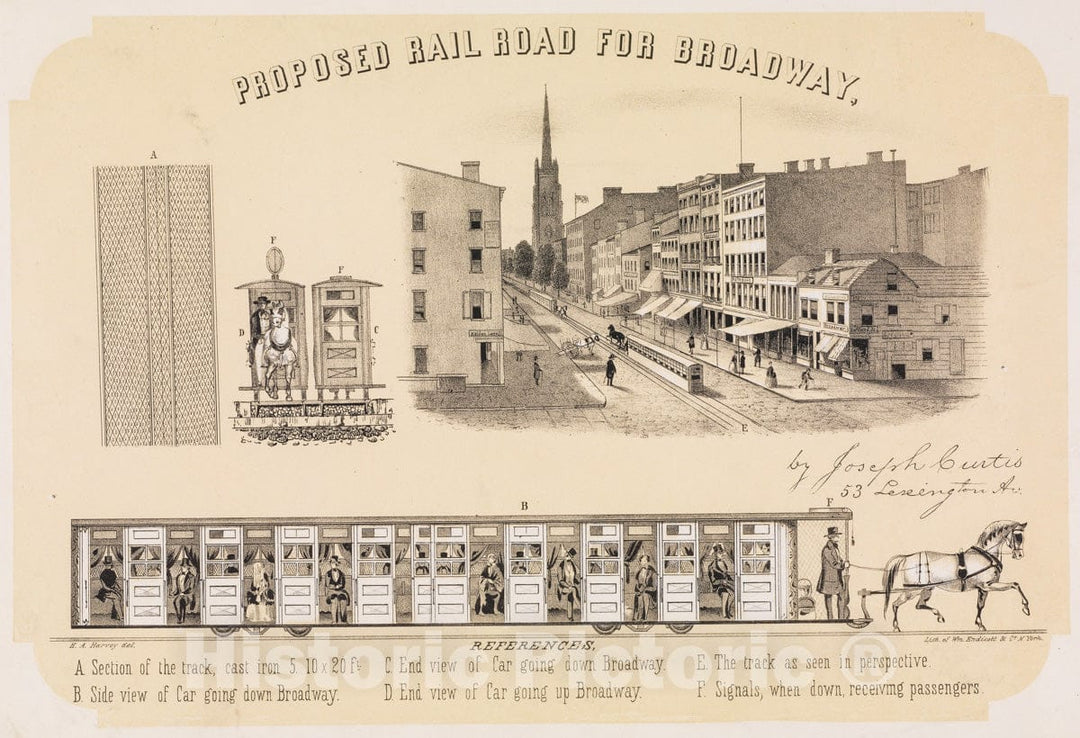 PROPOSED RAIL ROAD FOR BROADWAY,
A
F
F
D
C
E
by Joseph Curtis
53 Lexington Av.
B
F
H. A. Harvey del.
Lith. of Wm. Endicott & Co. N. York.
REFERENCES,
A Section of the track, cast iron 5. 10 x 20 ft.
B. Side view of Car going down Broadway.
C. End view of Car going down Broadway.
D. End view of Car going up Broadway.
E. The track as seen in perspective.
F. Signals, when down, receiving passengers.
Historic Pictoric ®